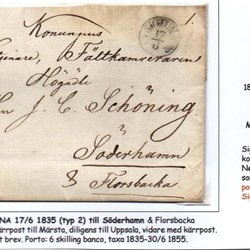 Konungens
1.
17
tjenare, Fältkamreraren
Högädle
n J. C. Schöning
Söderhamn
& Florsbacka
NA 17/6 1835 (typ 2) till Söderhamn & Florsbacka
kärrpost till Märsta, diligens till Uppsala, vidare med kärrpost.
t brev. Porto: 6 skilling banco, taxa 1835-30/6 1855.
18
M
Si
ko
Ne
so
po
Si